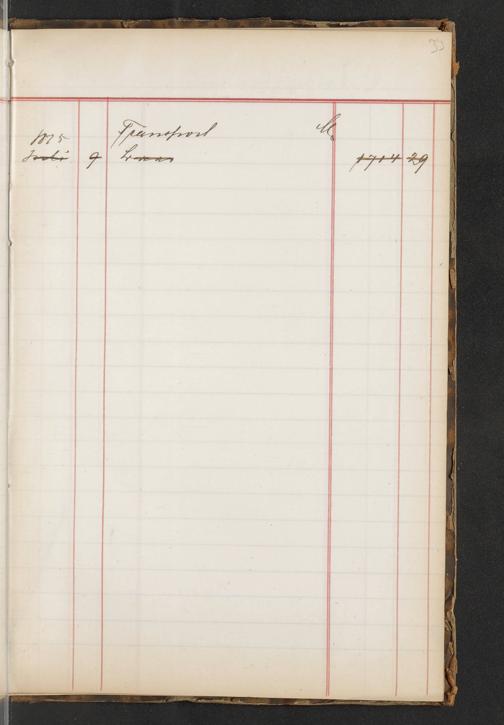 33
Transport M
1875
Juli 9 1714 29